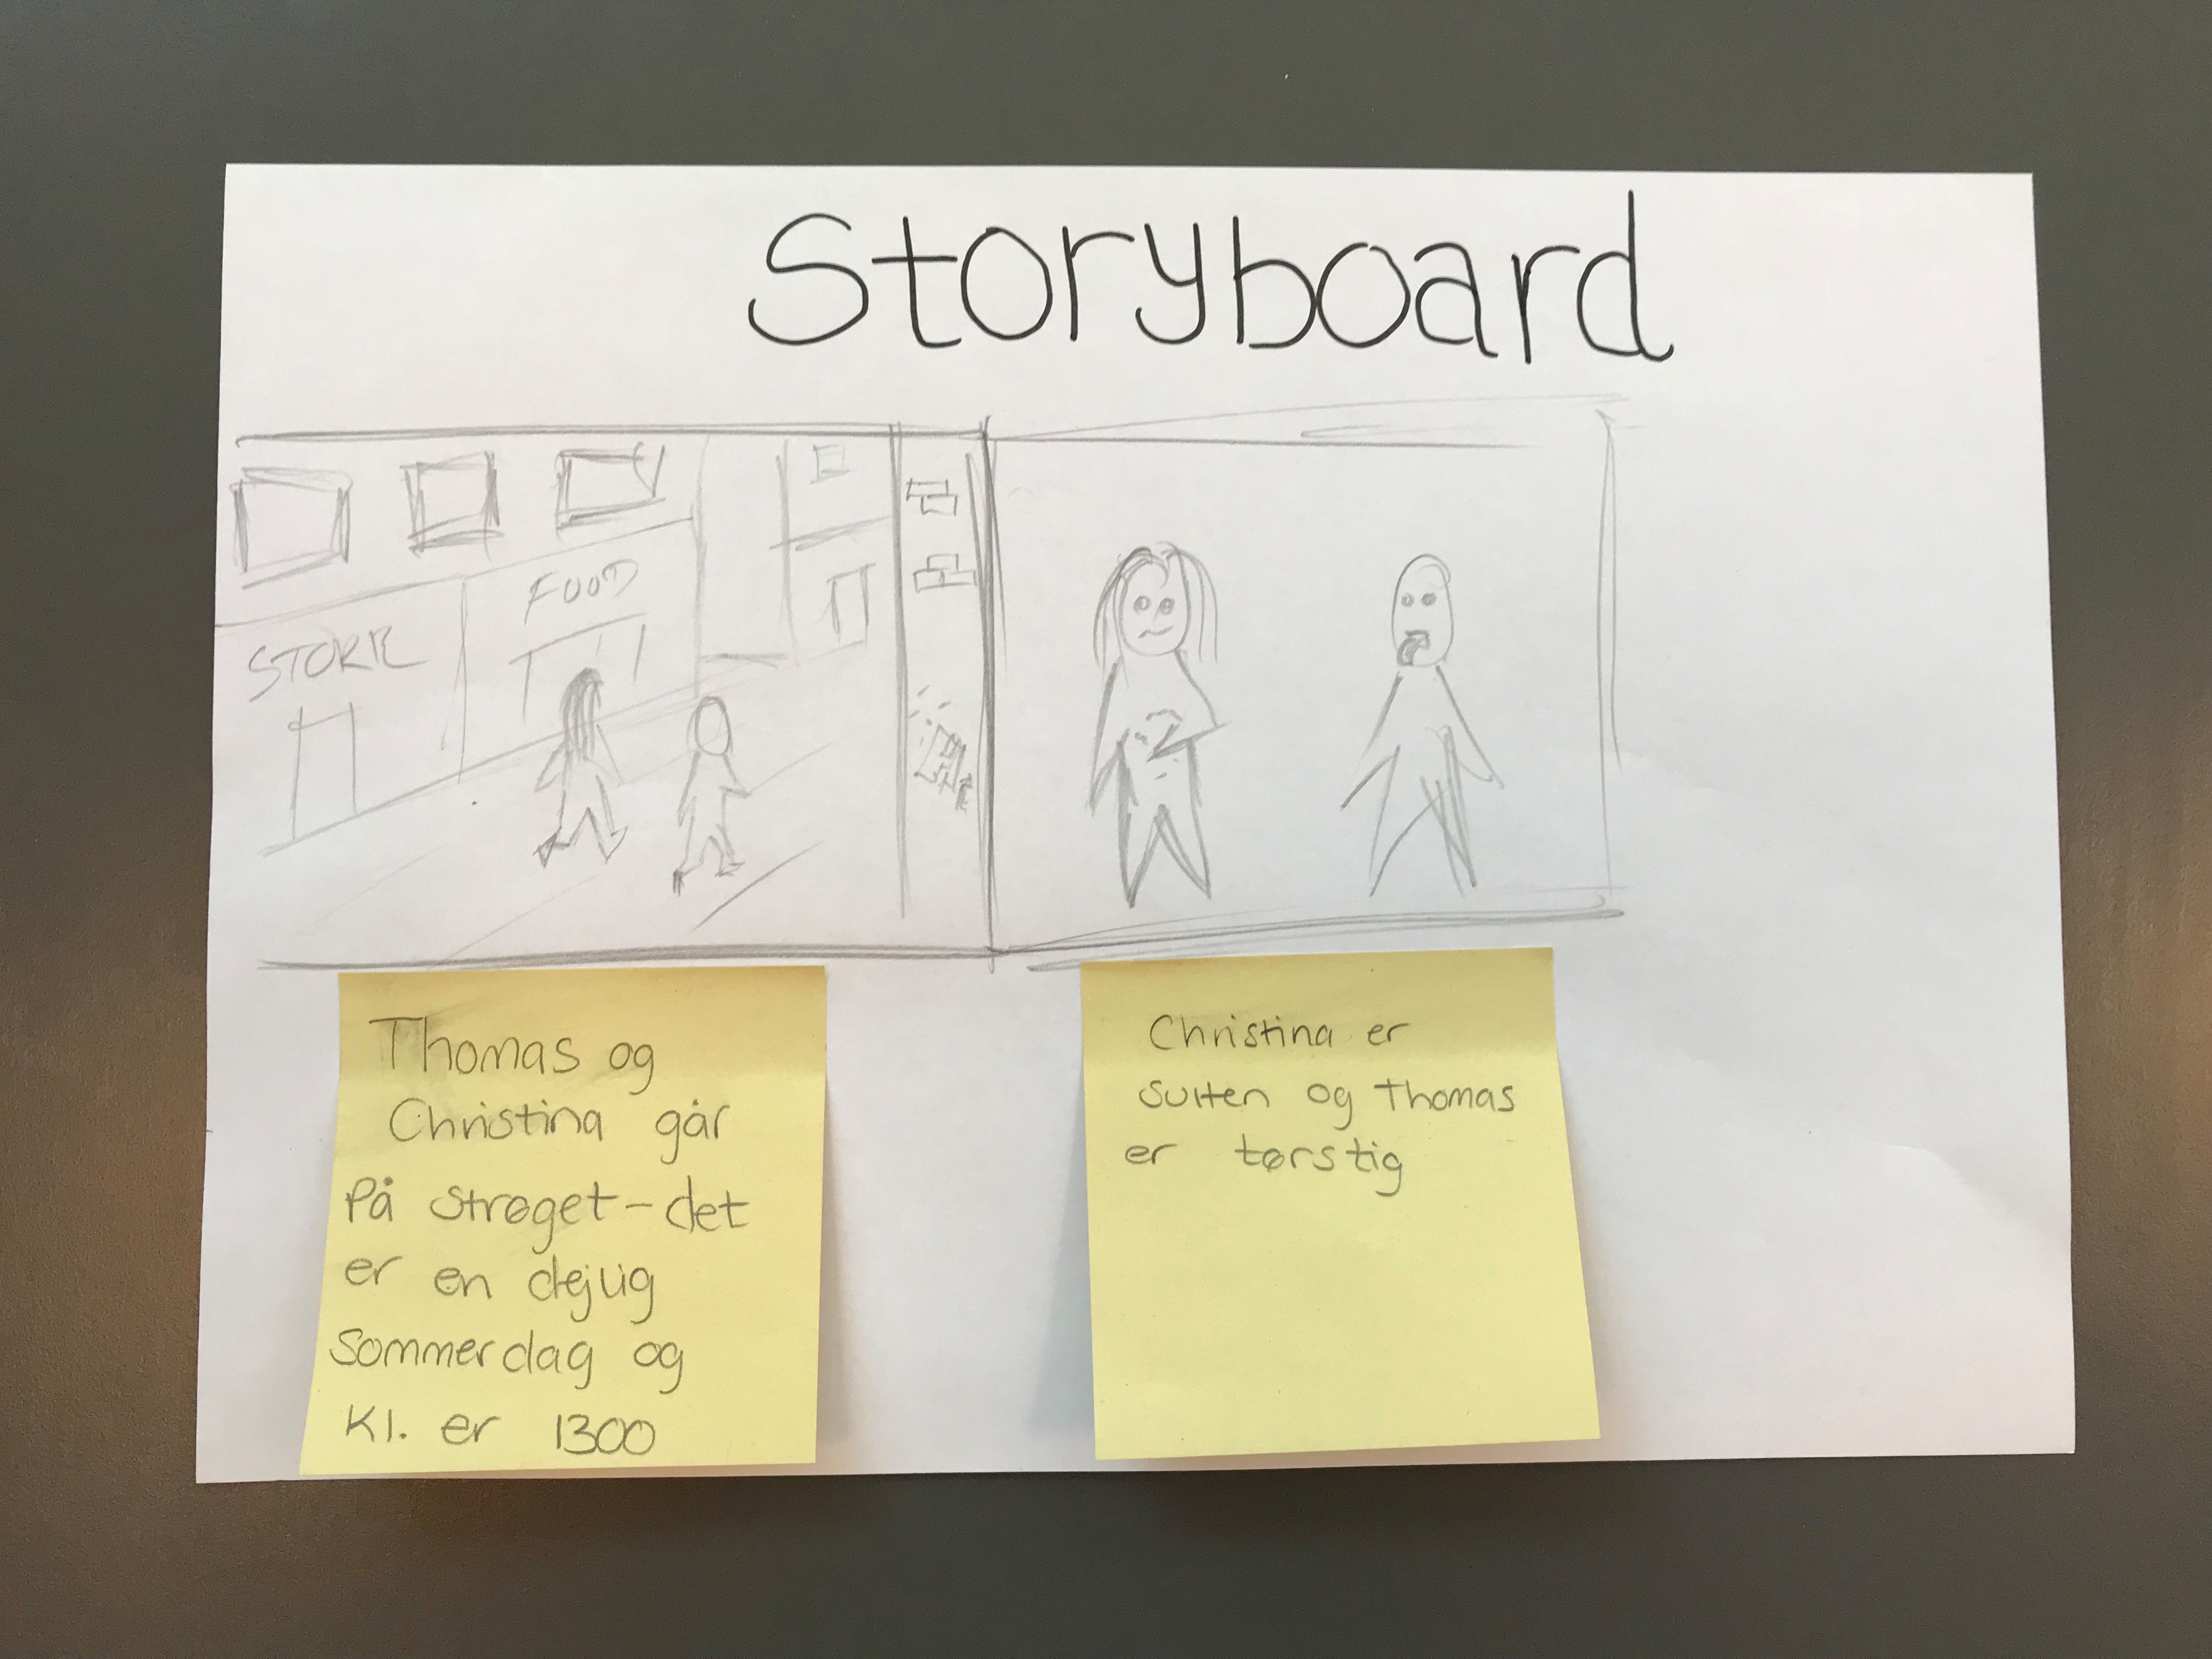 Storyboard
FOOD
STORE
Thomas og
Christina går
på strøget - det
er en dejlig
Sommerdag og
Kl. er 1300
Christina er
sulten og Thomas
er tørstig